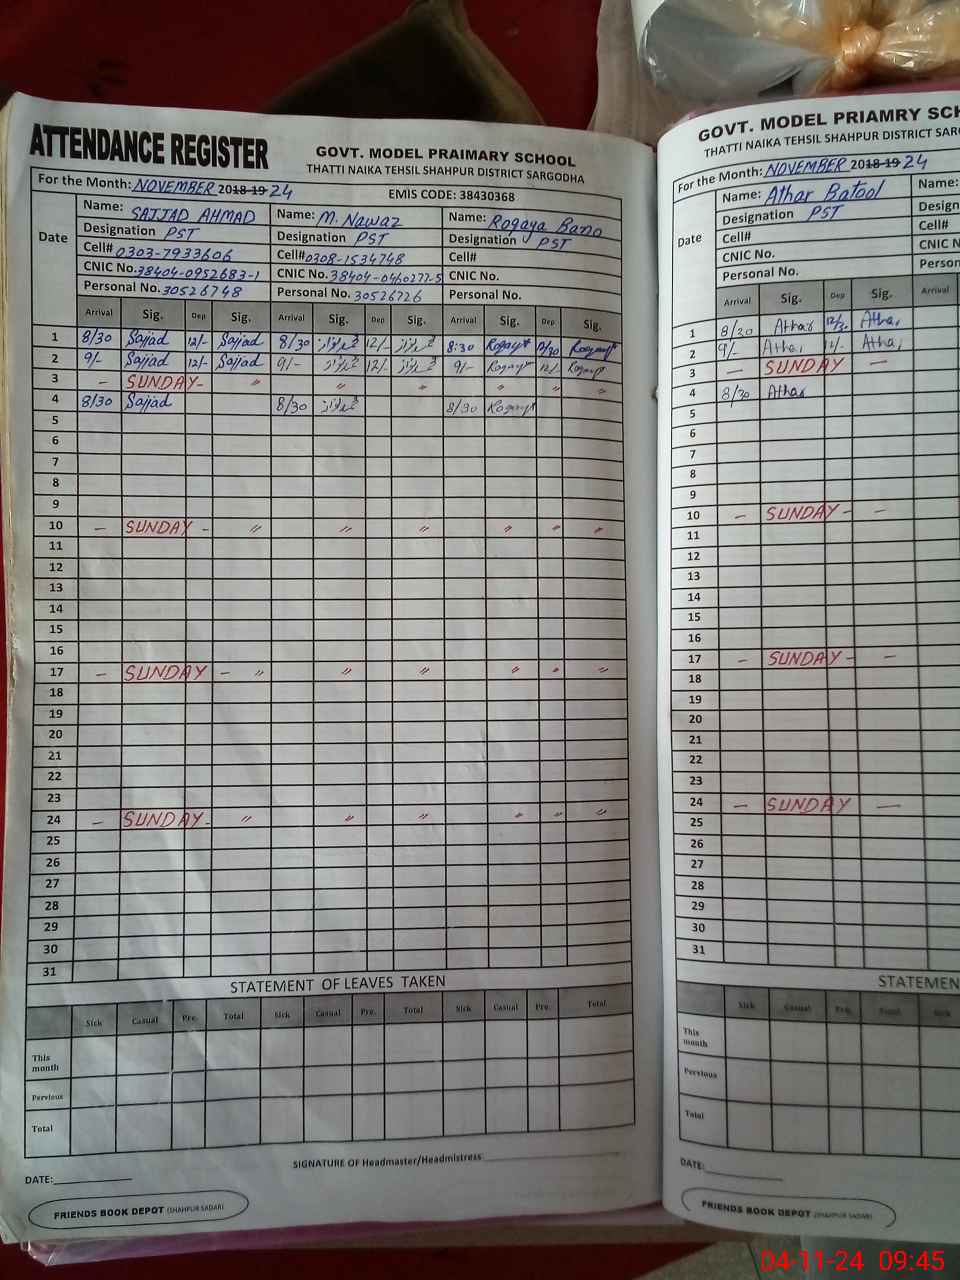 ATTENDANCE REGISTER
GOVT. MODEL PRAIMARY SCHOOL
THATTI NAIKA TEHSIL SHAHPUR DISTRICT SARGODHA
For the Month: NOVEMBER 2018-19 24 EMIS CODE: 38430368
Date
Name: SAJJAD AHMAD Name: M. Nawaz Name: Rogaya Bano
Designation PST Designation PST Designation PST
Cell# 0303-7933606 Cell# 0308-1534748 Cell#
CNIC No. 38404-0952683-1 CNIC No. 38404-0460277-5 CNIC No.
Personal No. 30526748 Personal No. 30526726 Personal No.
Arrival Sig. Dep Sig. Arrival Sig. Dep Sig. Arrival Sig. Dep Sig.
1 8/30 Sajjad 12/- Sajjad 8/30 12/- 8:30 12/30
2 9/- Sajjad 12/- Sajjad 9/- 12/- 9/- 12/-
3 - SUNDAY - " " " " " "
4 8/30 Sajjad 8/30 8/30
5
6
7
8
9
10 - SUNDAY - " " " " " "
11
12
13
14
15
16
17 - SUNDAY - " " " " " "
18
19
20
21
22
23
24 - SUNDAY - " " " " " "
25
26
27
28
29
30
31
STATEMENT OF LEAVES TAKEN
Sick Casual Pre. Total Sick Casual Pre. Total Sick Casual Pre. Total
This month
Pervious
Total
SIGNATURE OF Headmaster/Headmistress
DATE:
FRIENDS BOOK DEPOT (SHAHPUR SADAR)
GOVT. MODEL PRIAMRY SCH
THATTI NAIKA TEHSIL SHAHPUR DISTRICT SARG
For the Month: NOVEMBER 2018-19 24
Date
Name: Athar Batool Name:
Designation PST Design
Cell# Cell#
CNIC No. CNIC N
Personal No. Person
Arrival Sig. Dep Sig. Arrival
1 8/30 Athar 12/30 Athar
2 9/- Athar 12/- Athar
3 - SUNDAY -
4 8/30 Athar
5
6
7
8
9
10 - SUNDAY - -
11
12
13
14
15
16
17 - SUNDAY - -
18
19
20
21
22
23
24 - SUNDAY -
25
26
27
28
29
30
31
STATEMEN
Sick Casual Pre. Total Sick
This month
Pervious
Total
DATE:
FRIENDS BOOK DEPOT (SHAHPUR SADAR)
04-11-24 09:45